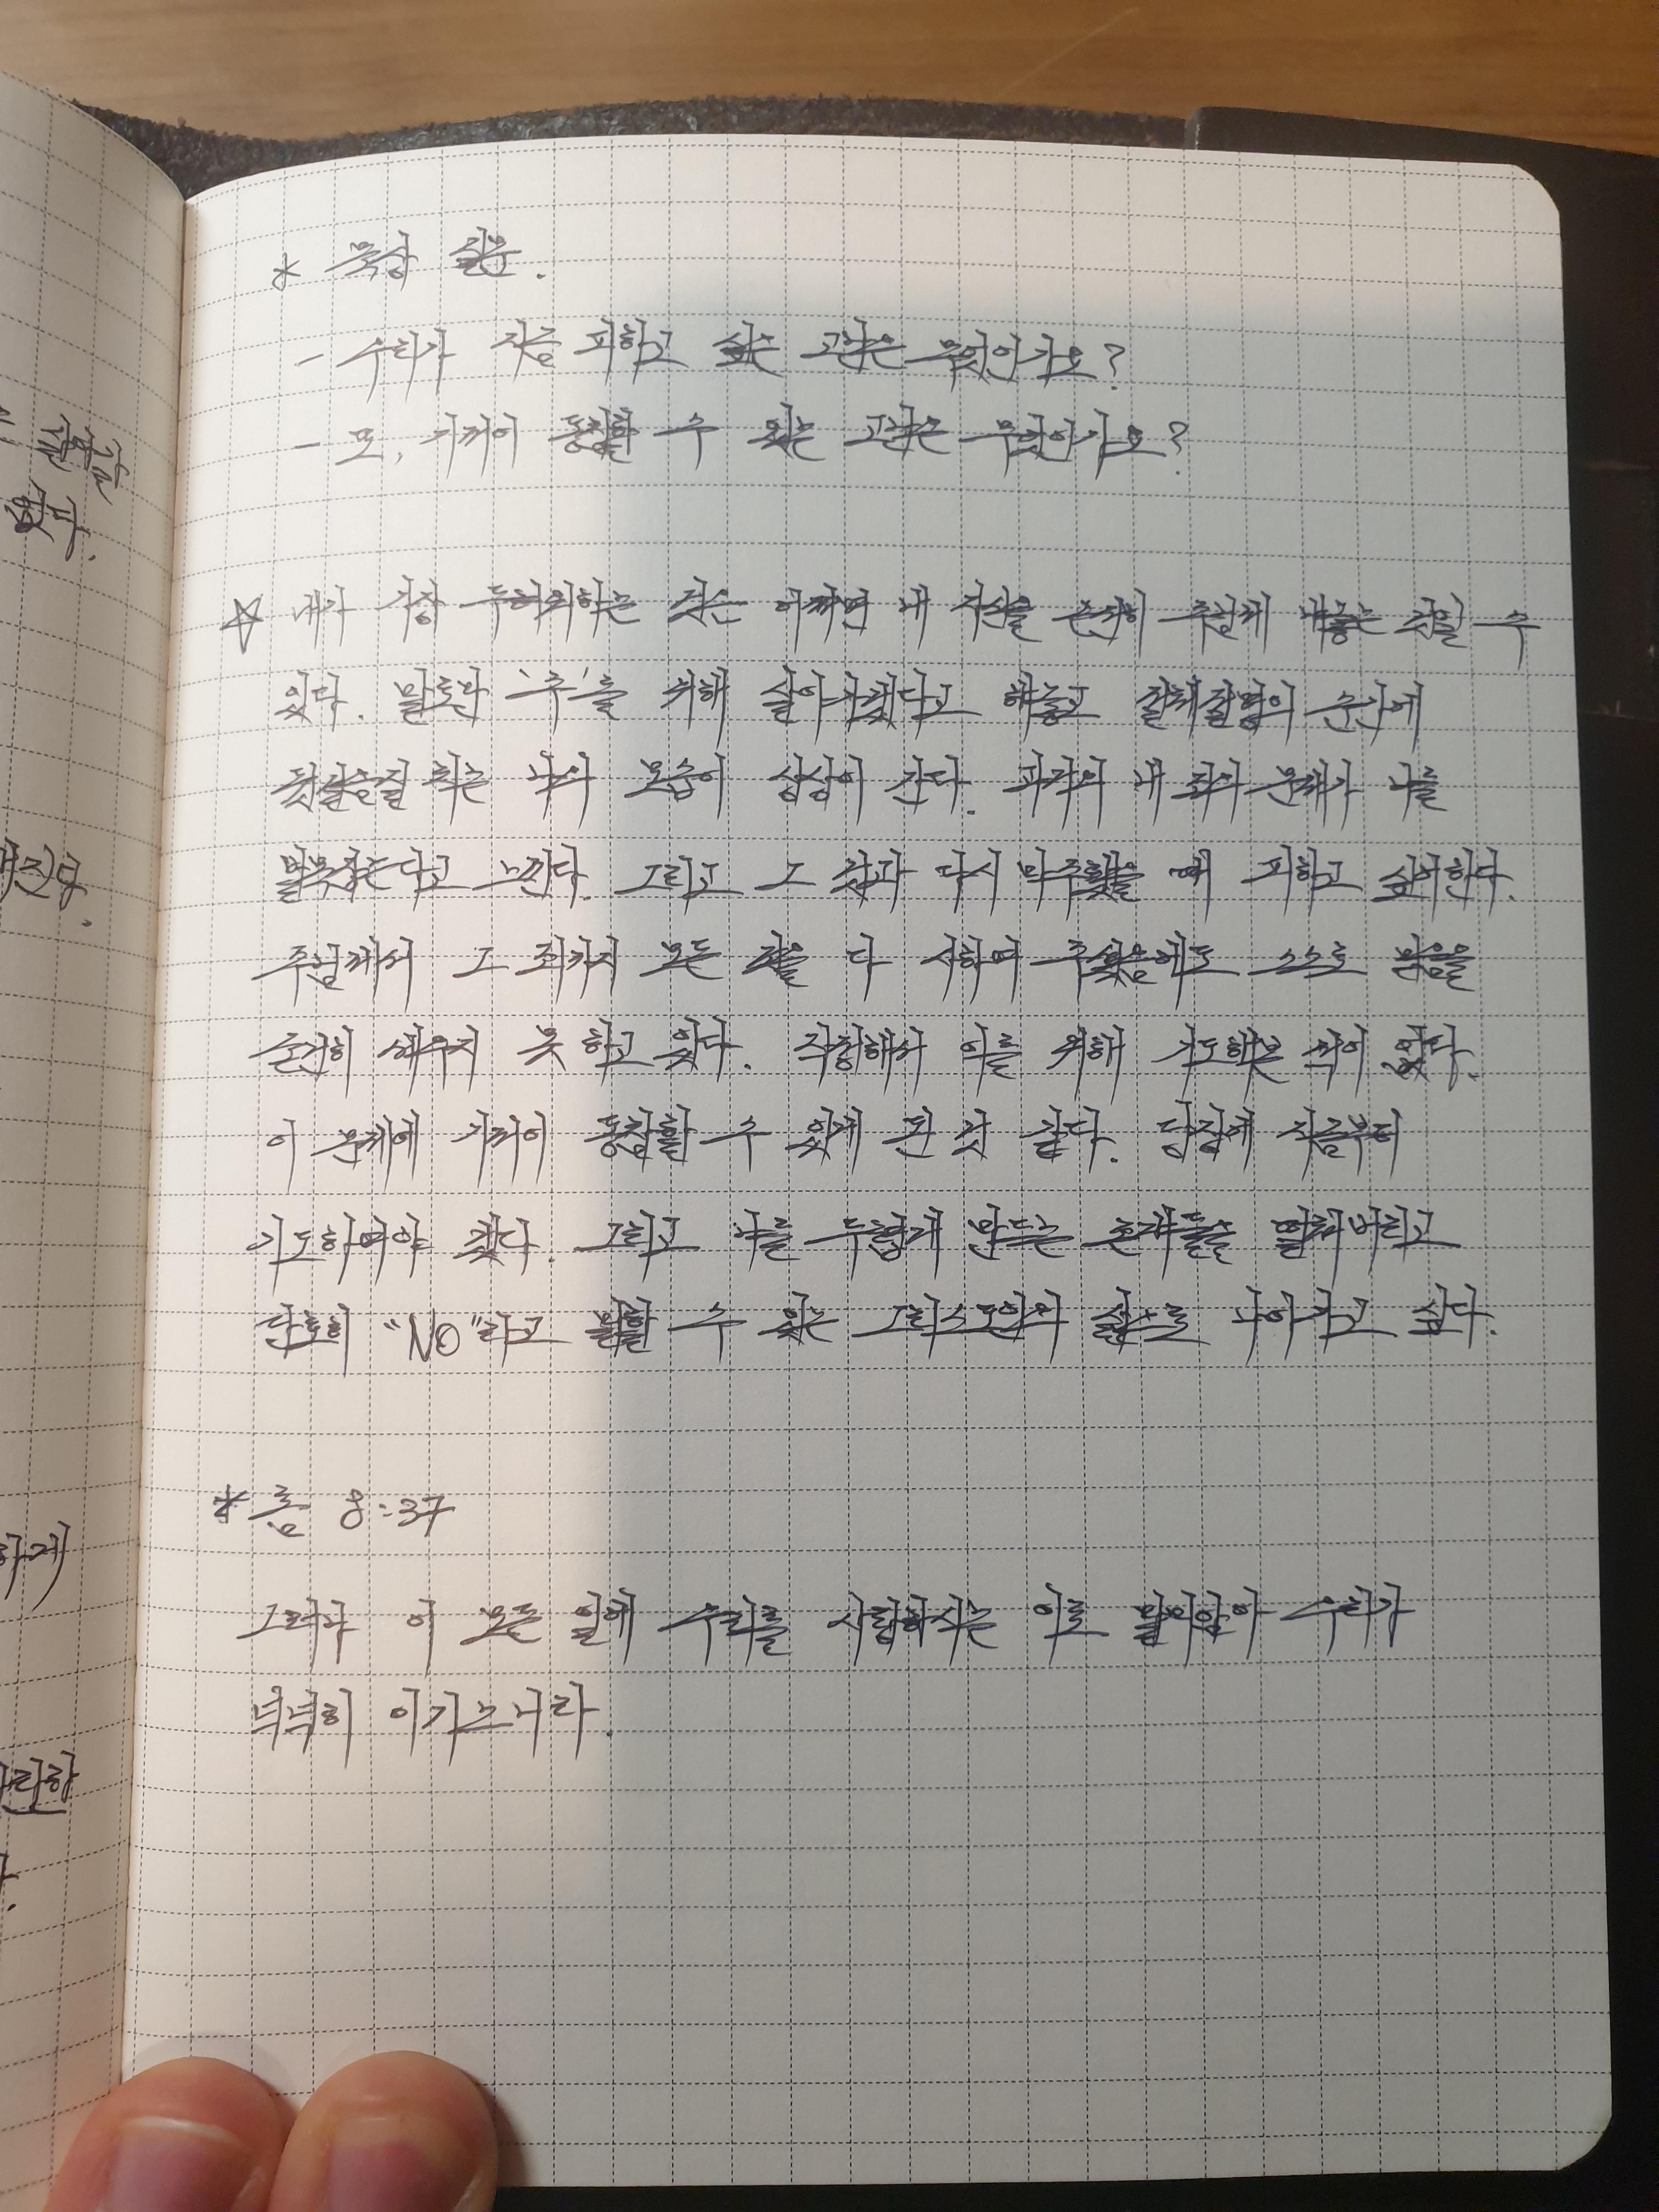 * 묵상 질문.
- 우리가 지금 피하고 싶은 고난은 무엇인가요?
- 또, 기꺼이 동참할 수 있는 고난은 무엇인가요?
☆ 내가 가장 두려워하는 것은 어쩌면 내 자신을 온전히 주님께 내놓는 것일 수
있다. 말로만 '주'를 위해 살아가겠다고 해놓고 절체절명의 순간에
뒷걸음질 치는 나의 모습이 상상이 간다. 과거의 내 죄의 문제가 나를
발목잡는다고 느낀다. 그리고 그 죄와 다시 마주했을 때 피하고 싶어한다.
주님께서 그 죄까지 모든 것을 다 사하여 주셨음에도 스스로 믿음을
온전히 세우지 못 하고 있다. 작정해서 이를 위해 기도해본 적이 없다.
이 문제에 기꺼이 동참할 수 있게 된 것 같다. 당장에 지금부터
기도하여야 겠다. 그리고 나를 두렵게 만드는 존재들을 떨쳐버리고
단호히 "NO"라고 말할 수 있는 그리스도인의 삶으로 나아가고 싶다.
* 롬 8:37
그러나 이 모든 일에 우리를 사랑하시는 이로 말미암아 우리가
넉넉히 이기느니라.